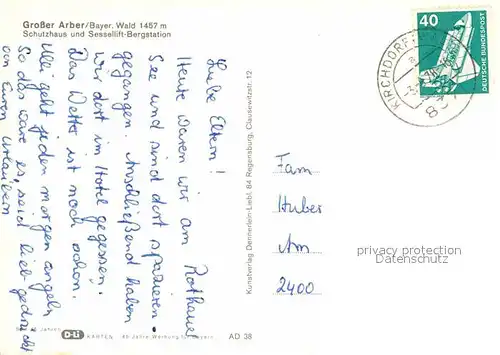 Großer Arber/Bayer. Wald 1457 m
Schutzhaus und Sessellift-Bergstation
Liebe Eltern!
Heute waren wir am Rothauer
See und sind dort spazieren-
gegangen. Anschließend haben
wir dort im Hotel gegessen.
Das Wetter ist noch schön.
Uli geht jeden morgen angeln
So das wäre es, seid lieb gedrückt
von Euren Urlaubern
Kunstverlag Dennerlein-Liebl, 84 Regensburg, Clausewitzstr. 12
40
DEUTSCHE BUNDESPOST
KIRCHDORF
8
Fam
Huber
Am
2400
privacy protection
Datenschutz
D-Li
KARTEN
Jahre Werbung für Bayern
AD 38